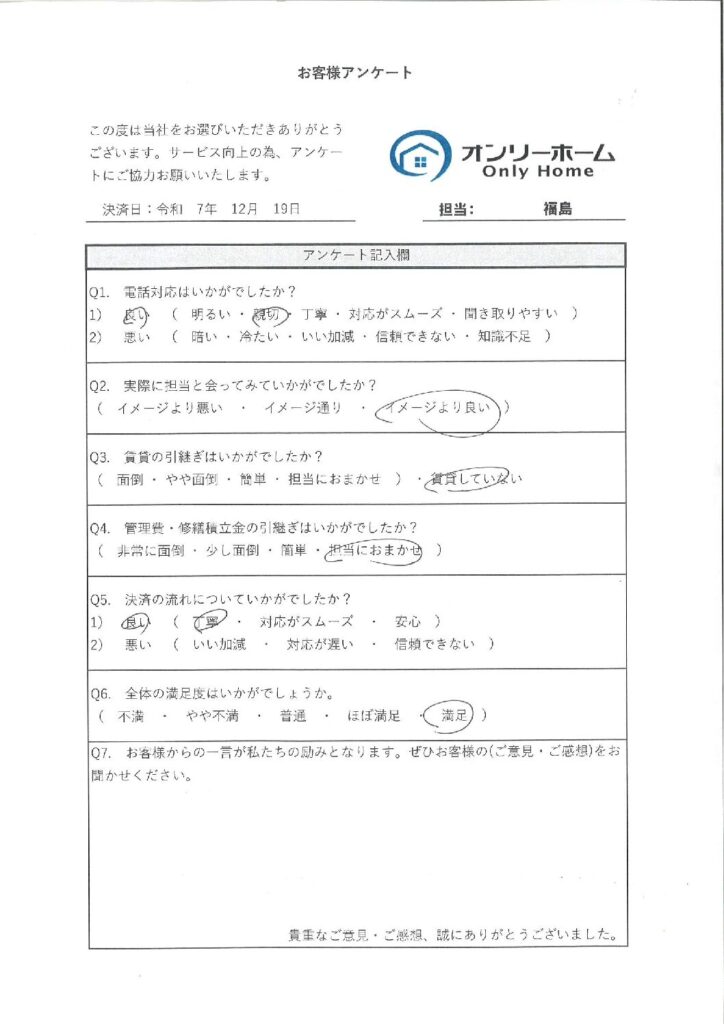 お客様アンケート
この度は当社をお選びいただきありがとう
ございます。サービス向上の為、アンケー
トにご協力お願いいたします。
オンリーホーム
Only Home
決済日：令和　7年　12月　19日
担当：　福島
アンケート記入欄
Q1.　電話対応はいかがでしたか？
1)　良い　（　明るい ・ 親切 ・ 丁寧 ・ 対応がスムーズ ・ 聞き取りやすい　）
2)　悪い　（　暗い ・ 冷たい ・ いい加減 ・ 信頼できない ・ 知識不足　）
Q2.　実際に担当と会ってみていかがでしたか？
（　イメージより悪い　・　イメージ通り　・　イメージより良い　）
Q3.　賃貸の引継ぎはいかがでしたか？
（　面倒 ・ やや面倒 ・ 簡単 ・ 担当におまかせ　）・ 賃貸していない
Q4.　管理費・修繕積立金の引継ぎはいかがでしたか？
（　非常に面倒 ・ 少し面倒 ・ 簡単 ・ 担当におまかせ　）
Q5.　決済の流れについていかがでしたか？
1)　良い　（　丁寧　・　対応がスムーズ　・　安心　）
2)　悪い　（　いい加減　・　対応が遅い　・　信頼できない　）
Q6.　全体の満足度はいかがでしょうか。
（　不満　・　やや不満　・　普通　・　ほぼ満足　・　満足　）
Q7.　お客様からの一言が私たちの励みとなります。ぜひお客様の(ご意見・ご感想)をお
聞かせください。
貴重なご意見・ご感想、誠にありがとうございました。